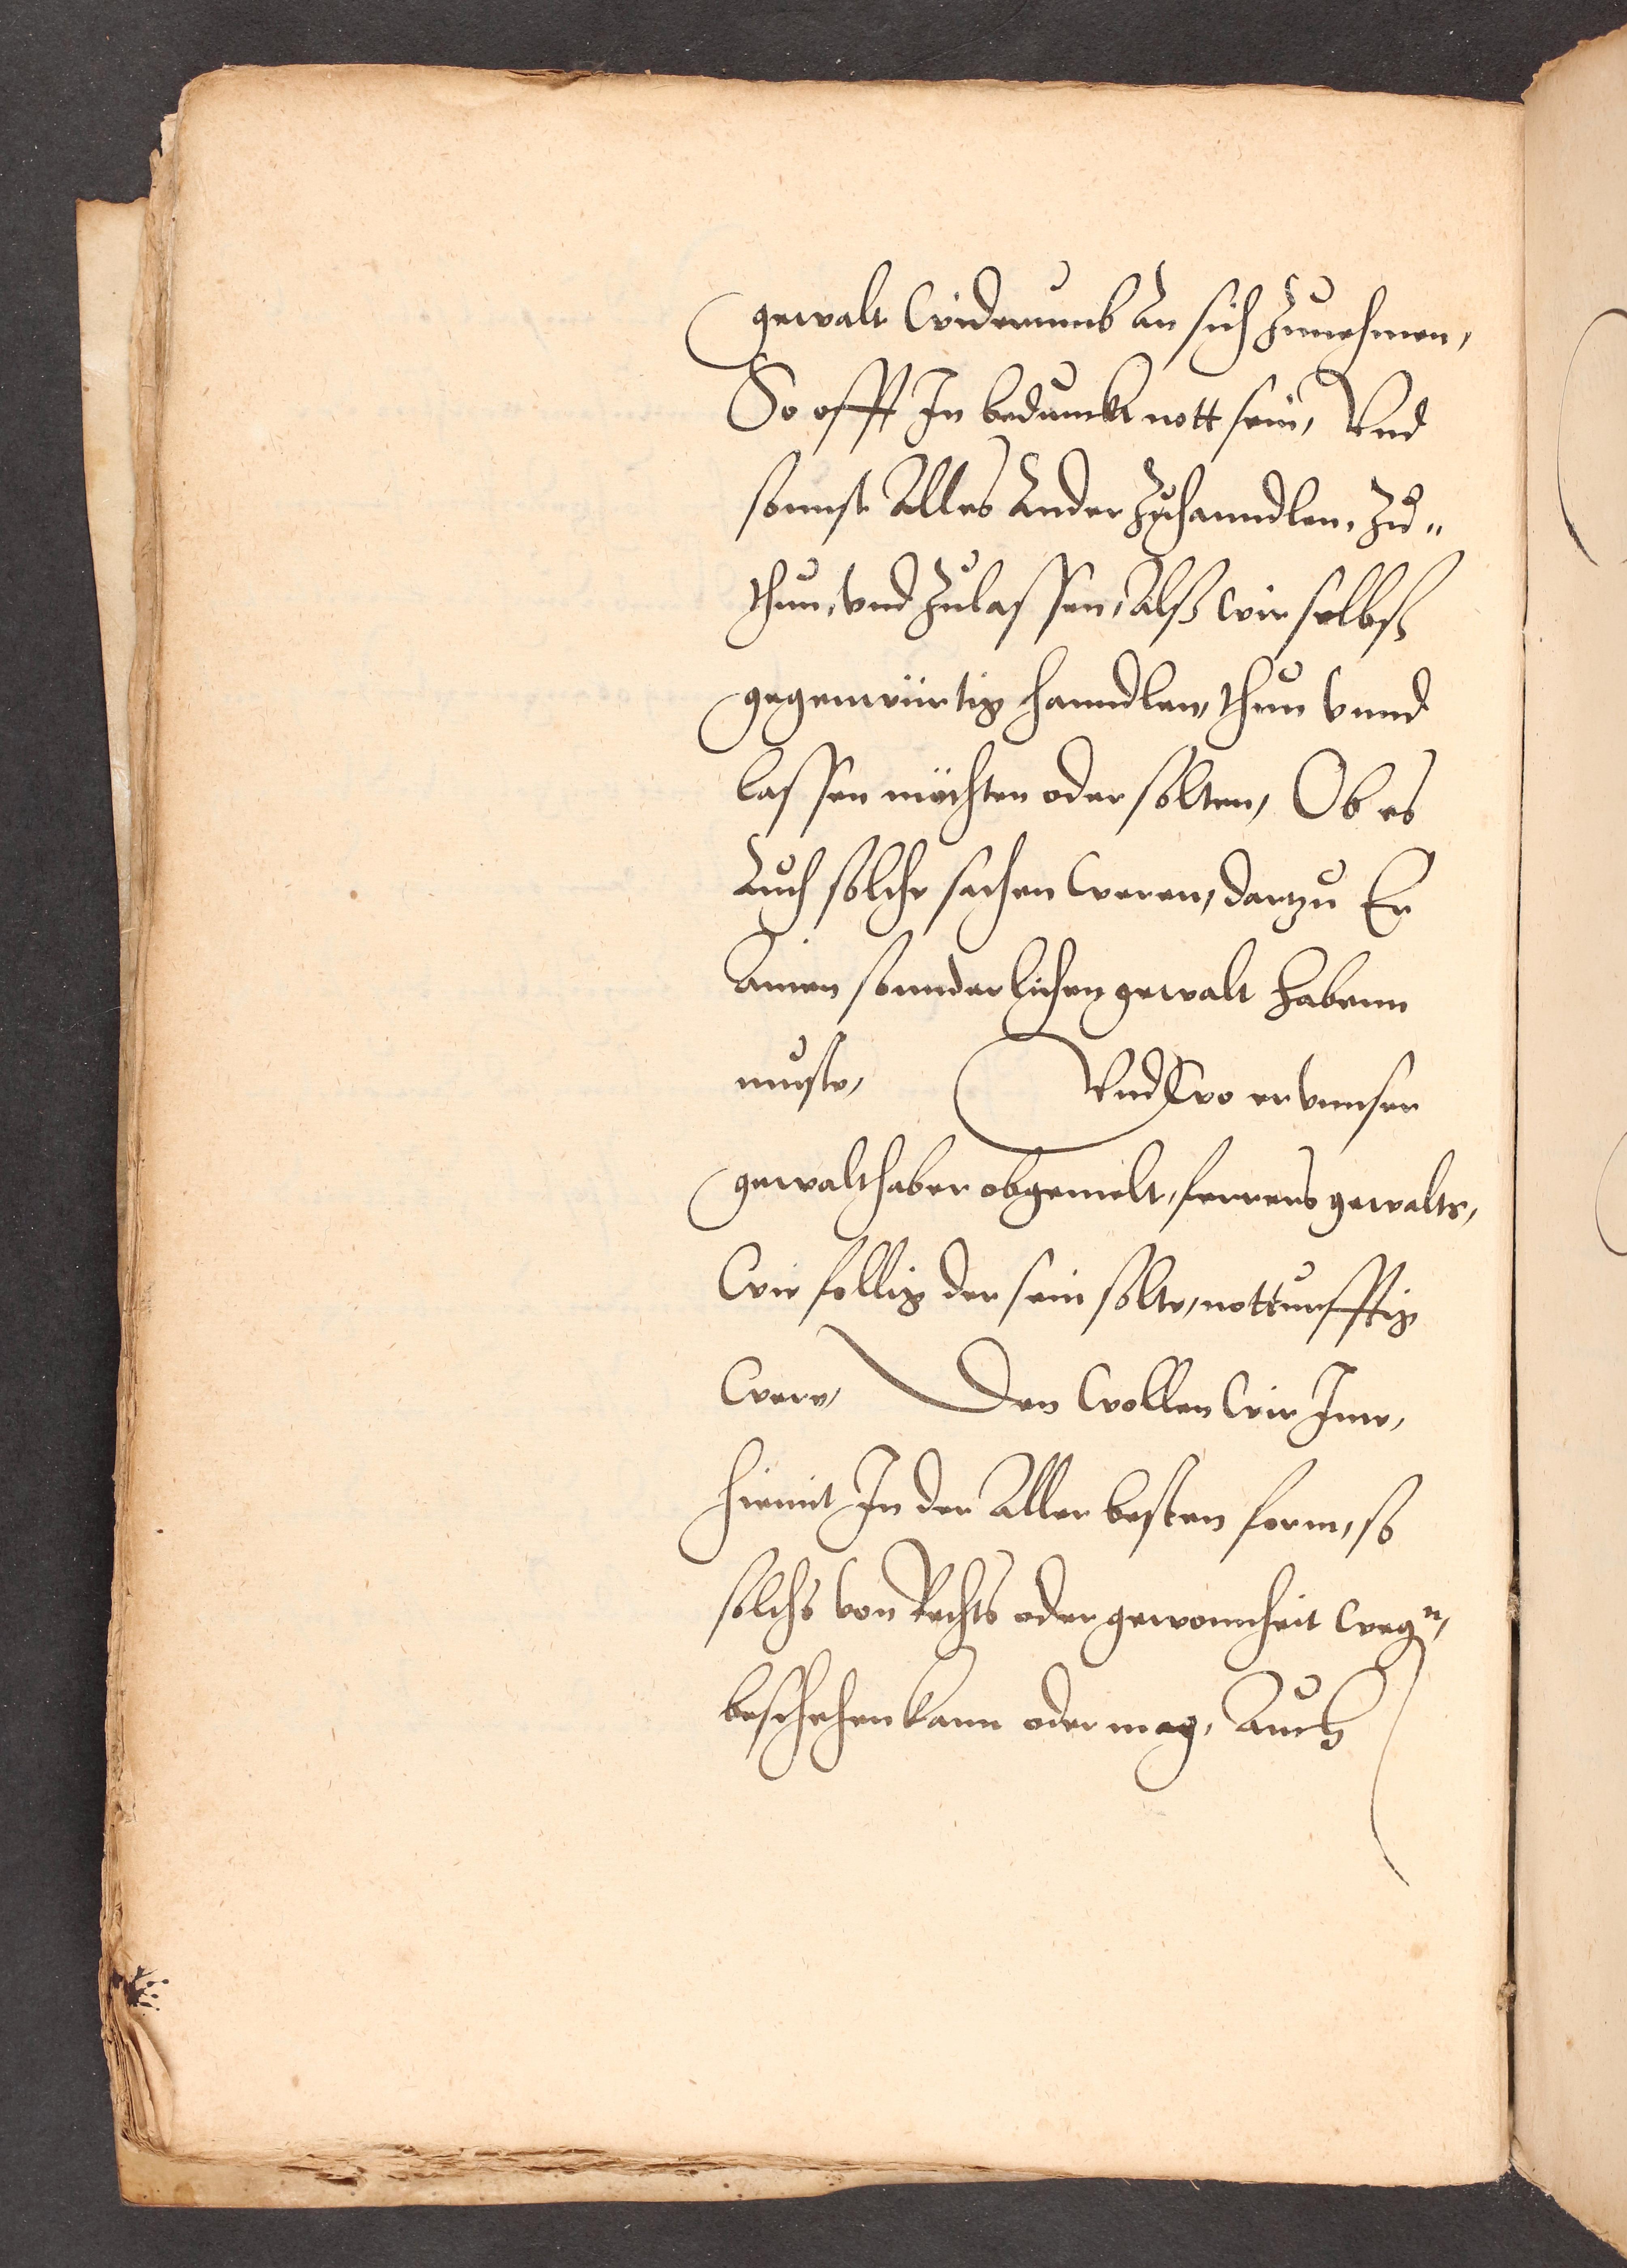 gewalt Widerumb An sich Zunehmen,
So offt In bedunckt nott sein, Vnd
sonnst Alles Ander Zuhanndlen, Zu„
thun, vnd Zulassen, Alß wir selbß
gegenwürtig hanndlen, thun vnnd
lassen möchten oder solten, Ob es
Auch solche sachen weren, dartzu Er
Ainen sonnderlichen gewalt habenn
muste, Vnd Wo er vnnser
gewalthaber obgemelt, ferrers gewalts,
Wieföllig der sein solte, notturfftig
Were, Den Wollen Wir Ime,
hiemit In der Aller besten form, so
solchs von Rechts oder gewonnheit wegn,
beschehen kann oder mag, Auch